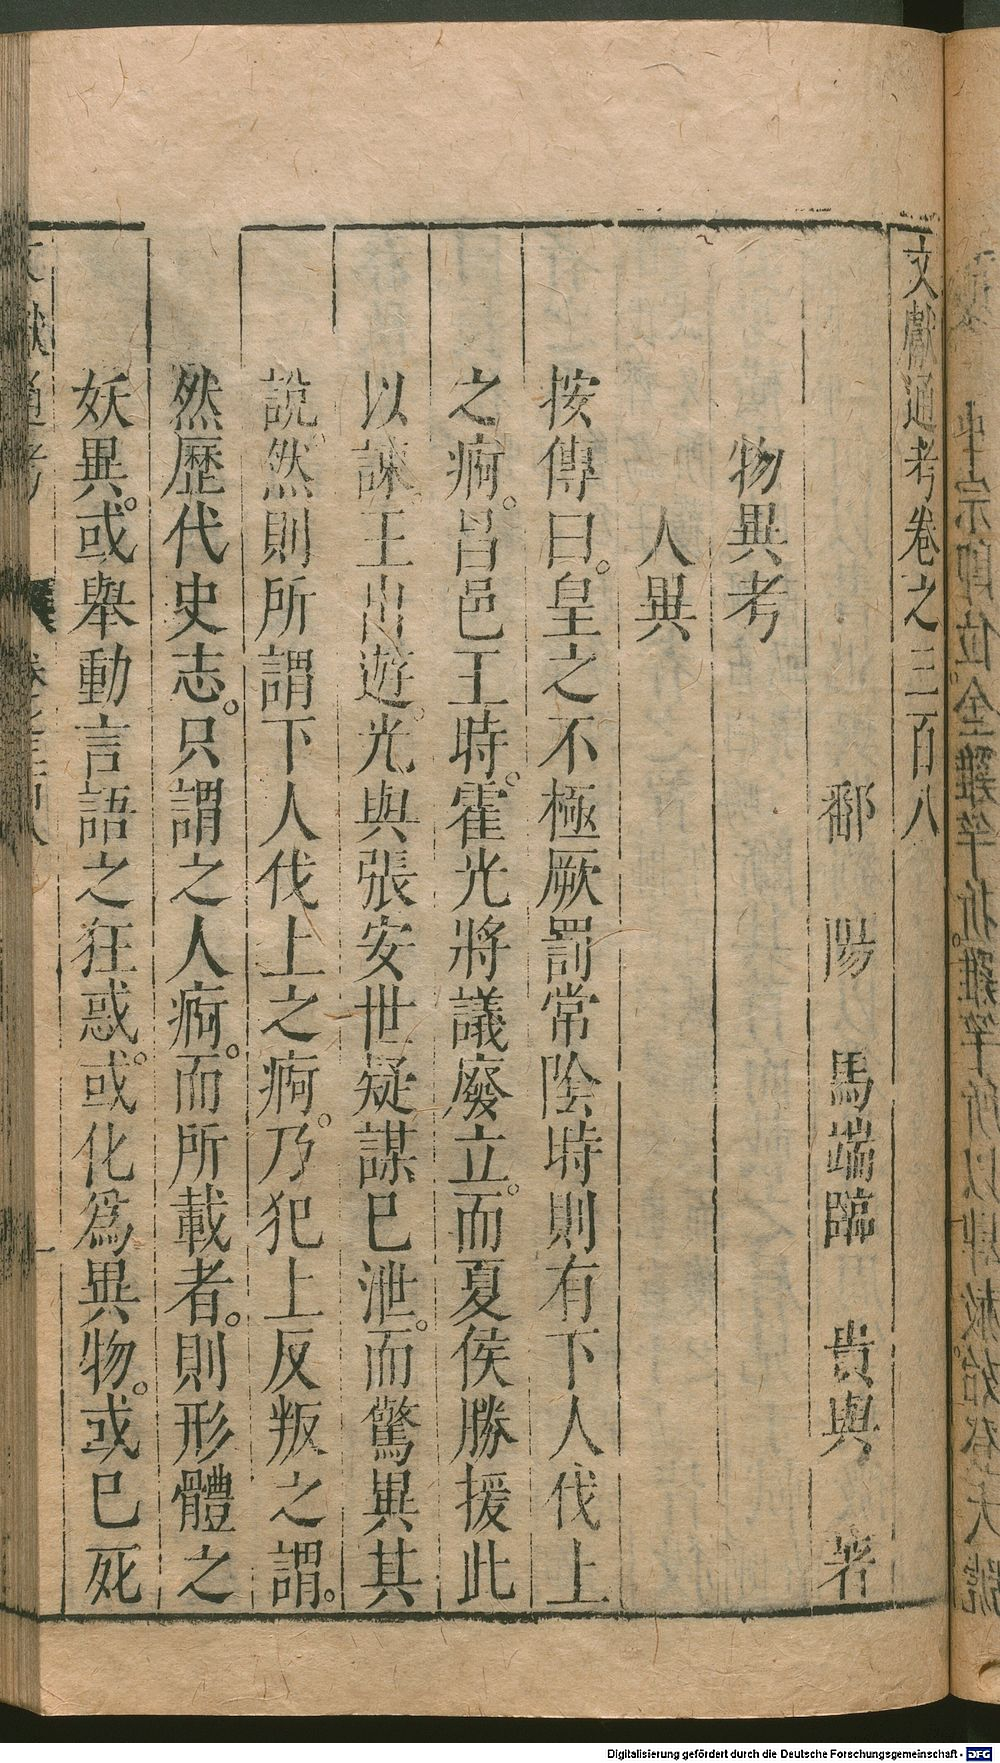 文獻通考卷之三百八
鄱陽馬端臨貴與著
物異考
人異
按傳曰。皇之不極厥罰常陰時則有下人伐上
之痾。昌邑王時。霍光將議廢立。而夏侯勝援此
以諫。王出遊。光與張安世疑謀已泄。而驚異其
說。然則所謂下人伐上之痾。乃犯上反叛之謂。
然歷代史志。只謂之人痾。而所載者。則形體之
妖異。或舉動言語之狂惑。或化爲異物。或已死
Digitalisierung gefördert durch die Deutsche Forschungsgemeinschaft - DFG